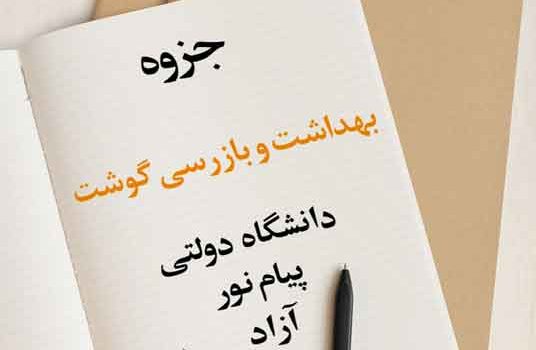 جزوه
بهداشت و بازرسی گوشت
دانشگاه دولتی
پیام نور
آزاد